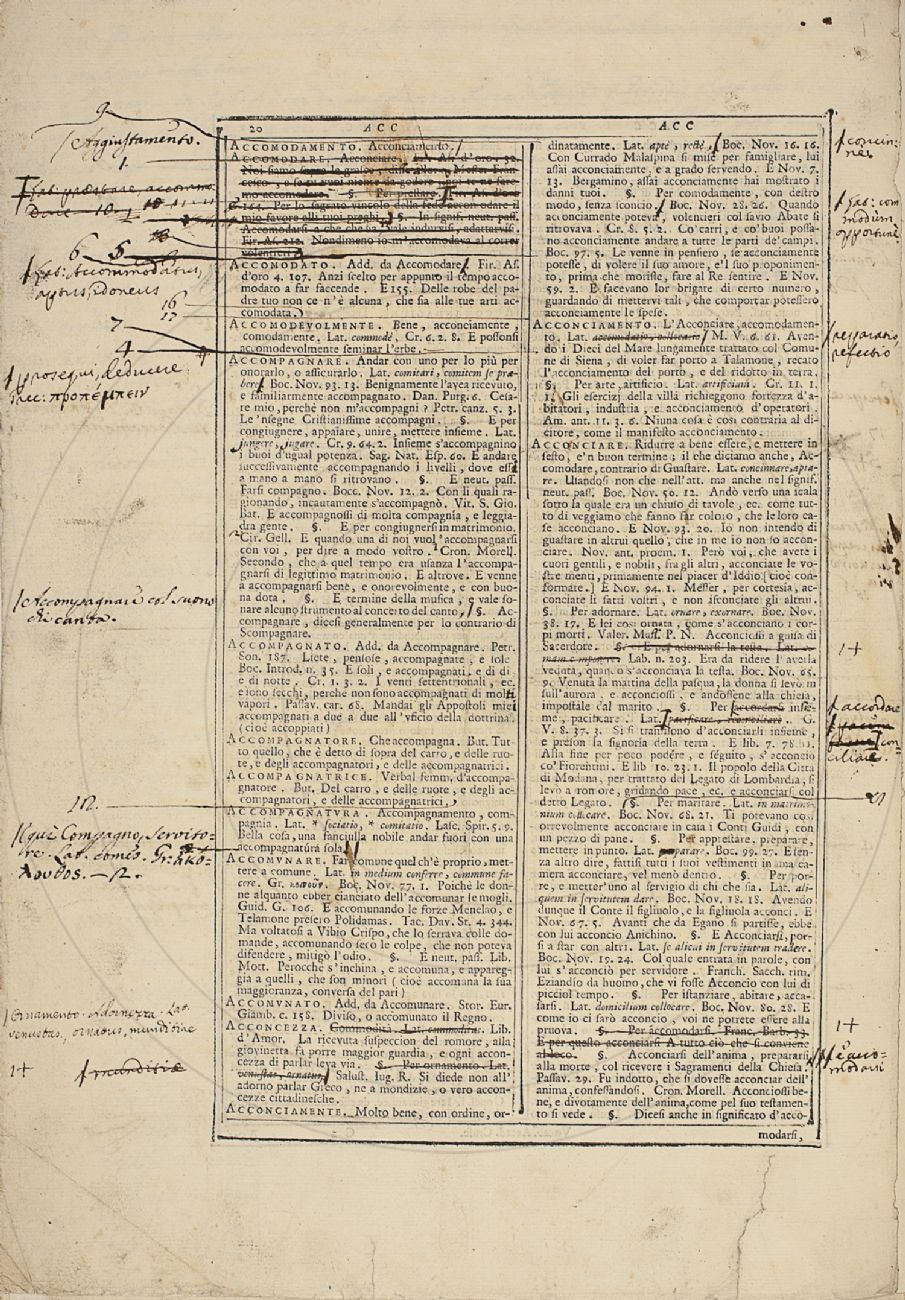 20 ACC ACC
Aggiustamento.
ACCOMODAMENTO. Acconciamento.
ACCOMODARE. Acconciare.
165. Per lo sagrato vincolo della fede accomodare il
mio favore alli tuoi preghi. §. In signif. neut. pass.
Accomodarsi a che che sia, vale indursivi, adattarvisi.
Fir. As. 212. Nondimeno io m'accomodava al correr
volentieri.
ACCOMODATO. Add. da Accomodare. Fir. As.
d'oro 4. 107. Anzi scelto per appunto il tempo acco-
modato a far faccende. E 155. Delle robe del pa-
dre tuo non ce n'è alcuna, che sia alle tue arti ac-
comodata.
ACCOMODEVOLMENTE. Bene, acconciamente,
comodamente. Lat. commodè, Cr. 6. 2. 8. E possonsi
accomodevolmente seminar l'erbe.
ACCOMPAGNARE. Andar con uno per lo più per
onorarlo, o assicurarlo. Lat. comitari, comitem se præ-
bere. Boc. Nov. 93. 13. Benignamente l'avea ricevuto,
e familiarmente accompagnato. Dan. Purg. 6. Cesa-
re mio, perchè non m'accompagni? Petr. canz. 5. 3.
Le 'nsegne Cristianissime accompagni. §. E per
congiugnere, appaiare, unire, mettere insieme. Lat.
jungere, jugare. Cr. 9. 64. 2. Insieme s'accompagnino
i buoi d'ugual potenza. Sag. Nat. Esp. 60. E andare
successivamente accompagnando i livelli, dove essi
a mano a mano si ritrovano. §. E neut. pass.
Farsi compagno. Bocc. Nov. 12. 2. Con li quali ra-
gionando, incautamente s'accompagnò. Vit. S. Gio.
Bat. E accompagnossi di molta compagnia, e leggia-
dra gente. §. E per congiugnersi in matrimonio.
Cir. Gell. E quando una di noi vuol'accompagnarsi
con voi, per dire a modo vostro. Cron. Morell.
Secondo, che a quel tempo era usanza l'accompa-
gnarsi di legittimo matrimonio. E altrove. E venne
a accompagnarsi bene, e onorevolmente, e con buo-
na dota. §. E termine della musica, e vale so-
nare alcuno strumento al concerto del canto. §. Ac-
compagnare, dicesi generalmente per lo contrario di
Scompagnare.
ACCOMPAGNATO. Add. da Accompagnare. Petr.
Son. 187. Liete, pensose, accompagnate, e sole
Boc. Introd. n. 35. E soli, e accompagnati, e di dì,
e di notte, Cr. 1. 3. 2. I venti settentrionali, ec.
e iono secchi, perchè non sono accompagnati di molti
vapori. Passav. car. 68. Mandai gli Appostoli miei
accompagnati a due a due all'vficio della dottrina.
(cioè accoppiati)
ACCOMPAGNATORE. Che accompagna. But. Tut-
to quello, che è detto di sopra del carro, e delle ruo-
te, e degli accompagnatori, e delle accompagnatrici.
ACCOMPAGNATRICE. Verbal femm, d'accompa-
gnatore. But. Del carro, e delle ruote, e degli ac-
compagnatori, e delle accompagnatrici,
ACCOMPAGNATVRA. Accompagnamento, com-
pagnia. Lat. * sociatio, * comitatio. Lasc. Spir. 5. 9.
Bella cosa, una fanciulla nobile andar fuori con una
accompagnatura sola.
ACCOMVNARE. Far comune quel ch'è proprio, met-
tere a comune. Lat. in medium conferre, commune fa-
cere. Gr. κοινοῦν. Boc. Nov. 77. 1. Poichè le don-
ne alquanto ebber cianciato dell'accomunar le mogli.
Guid. G. 106. E accomunando le forze Menelao, e
Telamone presero Polidamas. Tac. Dav. St. 4. 344.
Ma voltatosi a Vibio Crispo, che lo serrava colle do-
mande, accomunando seco le colpe, che non poteva
difendere, mitigò l'odio. §. E neut. pass. Lib.
Mott. Perocchè s'inchina, e accomuna, e appareg-
gia a quelli, che son minori (cioè accomuna la sua
maggioranza, conversa del pari)
ACCOMVNATO. Add. da Accomunare. Stor. Eur.
Giamb. c. 158. Diviso, o accomunato il Regno.
ACCONCEZZA. Commodità. Lat. commoditas. Lib.
d'Amor. La ricevuta suspeccion del romore, alla
giovinetta fa porre maggior guardia, e ogni accon-
cezza di parlar leva via. §. Per ornamento. Lat.
venustas, ornatus. Salust. Iug. R. Si diede non all'
adorno parlar Greco, ne a mondizie, o vero accon-
cezze cittadinesche.
ACCONCIAMENTE. Molto bene, con ordine, or-
dinatamente. Lat. aptè, rectè. Boc. Nov. 16. 16.
Con Currado Malaspina si mise per famigliare, lui
assai acconciamente, e a grado servendo. E Nov. 7.
13. Bergamino, assai acconciamente hai mostrato i
danni tuoi. §. Per comodamente, con destro
modo, senza sconcio. Boc. Nov. 28. 26. Quando
acconciamente poteva, volentieri col savio Abate si
ritrovava. Cr. 8. 5. 2. Co' carri, e co' buoi possa-
no acconciamente andare a tutte le parti de' campi.
Boc. 97. 5. Le venne in pensiero, se acconciamente
potesse, di volere il suo amore, e'l suo proponimen-
to, prima che morisse, fare al Re sentire. E Nov.
59. 2. E facevano lor brigate di certo numero,
guardando di mettervi tali, che comportar potessero
acconciamente le spese.
ACCONCIAMENTO. L'Acconciare, accomodamen-
to. Lat. accomodatio, collocatio. M. V. 6. 61. Aven-
do i Dieci del Mare lungamente trattato col Comu-
ne di Siena, di voler far porto a Talamone, recato
l'acconciamento del porto, e del ridotto in terra.
§. Per arte, artificio. Lat. artificium. Cr. 11. 1.
1. Gli esercizj della villa richieggono fortezza d'a-
bitatori, industria, e acconciamento d'operatori.
Am. ant. 11. 3. 6. Niuna cosa è così contraria al di-
citore, come il manifesto acconciamento.
ACCONCIARE. Ridurre a bene essere, e mettere in
sesto, e'n buon termine; il che diciamo anche, Ac-
comodare, contrario di Guastare. Lat. concinnare, apta-
re. Usandosi non che nell'att. ma anche nel signif.
neut. pass. Boc. Nov. 50. 12. Andò verso una scala
sotto la quale era un chiuso di tavole, ec. come tut-
to dì veggiamo che fanno far coloro, che le loro ca-
se acconciano. E Nov. 93. 20. Io non intendo di
guastare in altrui quello, che in me io non so accon-
ciare. Nov. ant. proem. 1. Però voi, che avete i
cuori gentili, e nobili, fra gli altri, acconciate le vo-
stre menti, primamente nel piacer d'Iddio. [cioè con-
formate.] E Nov. 94. 1. Messer, per cortesia, ac-
conciate li fatti vostri, e non isconciate gli altrui.
§. Per adornare. Lat. ornare, exornare. Boc. Nov.
38. 17. E lei così ornata, come s'acconciano i cor-
pi morti. Valer. Mass. P. N. Acconciossi a guisa di
Sacerdote. §. E per adornarsi la testa. Lat. co-
mam componere. Lab. n. 203. Era da ridere l'averla
veduta, quando s'acconciava la testa. Boc. Nov. 65.
9. Venuta la mattina della pasqua, la donna si levò in
sull'aurora, e acconciossi, e andossene alla chiesa,
impostale dal marito. §. Per accordare insie-
me, pacificare. Lat. pacificare, reconciliare. G.
V. 8. 37. 3. Si si tramisono d'acconciarli insieme,
e preson la signoria della terra. E lib. 7. 78.
Alla fine per poco podere, e seguito, s'acconciò
co' Fiorentini. E lib 10. 23. 1. Il popolo della Città
di Modana, per trattato del Legato di Lombardia, si
levò a romore, gridando pace, ec. e acconciarsi col
detto Legato. §. Per maritare. Lat. in matrimo-
nium collocare. Boc. Nov. 68. 21. Ti potevano così
orrevolmente acconciare in casa i Conti Guidi, con
un pezzo di pane. §. Per appressare, preparare,
mettere in punto. Lat. parare. Boc. 99. 27. E sen-
za altro dire, fattisi tutti i suoi vestimenti in una ca-
mera acconciare, vel menò dentro. §. Per por-
re, e metter'uno al servigio di chi che sia. Lat. ali-
quem in servitutem dare. Boc. Nov. 18. 18. Avendo
dunque il Conte il figliuolo, e la figliuola acconci. E
Nov. 67. 5. Avanti che da Egano si partisse, ebbe
con lui acconcio Anichino. §. E Acconciarsi, por-
si a star con altri. Lat. se alicui in servitutem tradere.
Boc. Nov. 19. 24. Col quale entrata in parole, con
lui s'acconciò per servidore. Franch. Sacch. rim.
Eziandio da huomo, che vi fosse Acconcio con lui di
picciol tempo. §. Per istanziare, abitare, acca-
sarsi. Lat. domicilium collocare. Boc. Nov. 80. 28. E
come io ci sarò acconcio, voi ne potrete essere alla
pruova. §. Per accomodarsi. Franc. Barb. 33.
E per questo acconciarsi A tutto ciò che si conviene
al loco. §. Acconciarsi dell'anima, prepararsi
alla morte, col ricevere i Sagramenti della Chiesa.
Passav. 29. Fu indotto, che si dovesse acconciar dell'
anima, confessandosi. Cron. Morell. Acconciossi be-
ne, e divotamente dell'anima, come pel suo testamen-
to si vede. §. Dicesi anche in significato d'acco-
modarsi,
9
1
6 5
Lat: Accommodatus,
aptus, idoneus
16
17
7
4
prosequi, deducere
Græc: προπέμπειν
Accompagnare col suono
chi canta.
12.
que Compagno, Servito-
re. Lat. comes. Gr. ἀκό-
λουθος. — 12.
Ornamento. Adornezza. Lat.
venustas, ornatus, munditiæ
1+
munditiæ
concin-
ne,
Lat: com
modum,
opportune
reparatio,
refectio
1+
accordare
con
ciliare.
1+
e acco-
modarsi